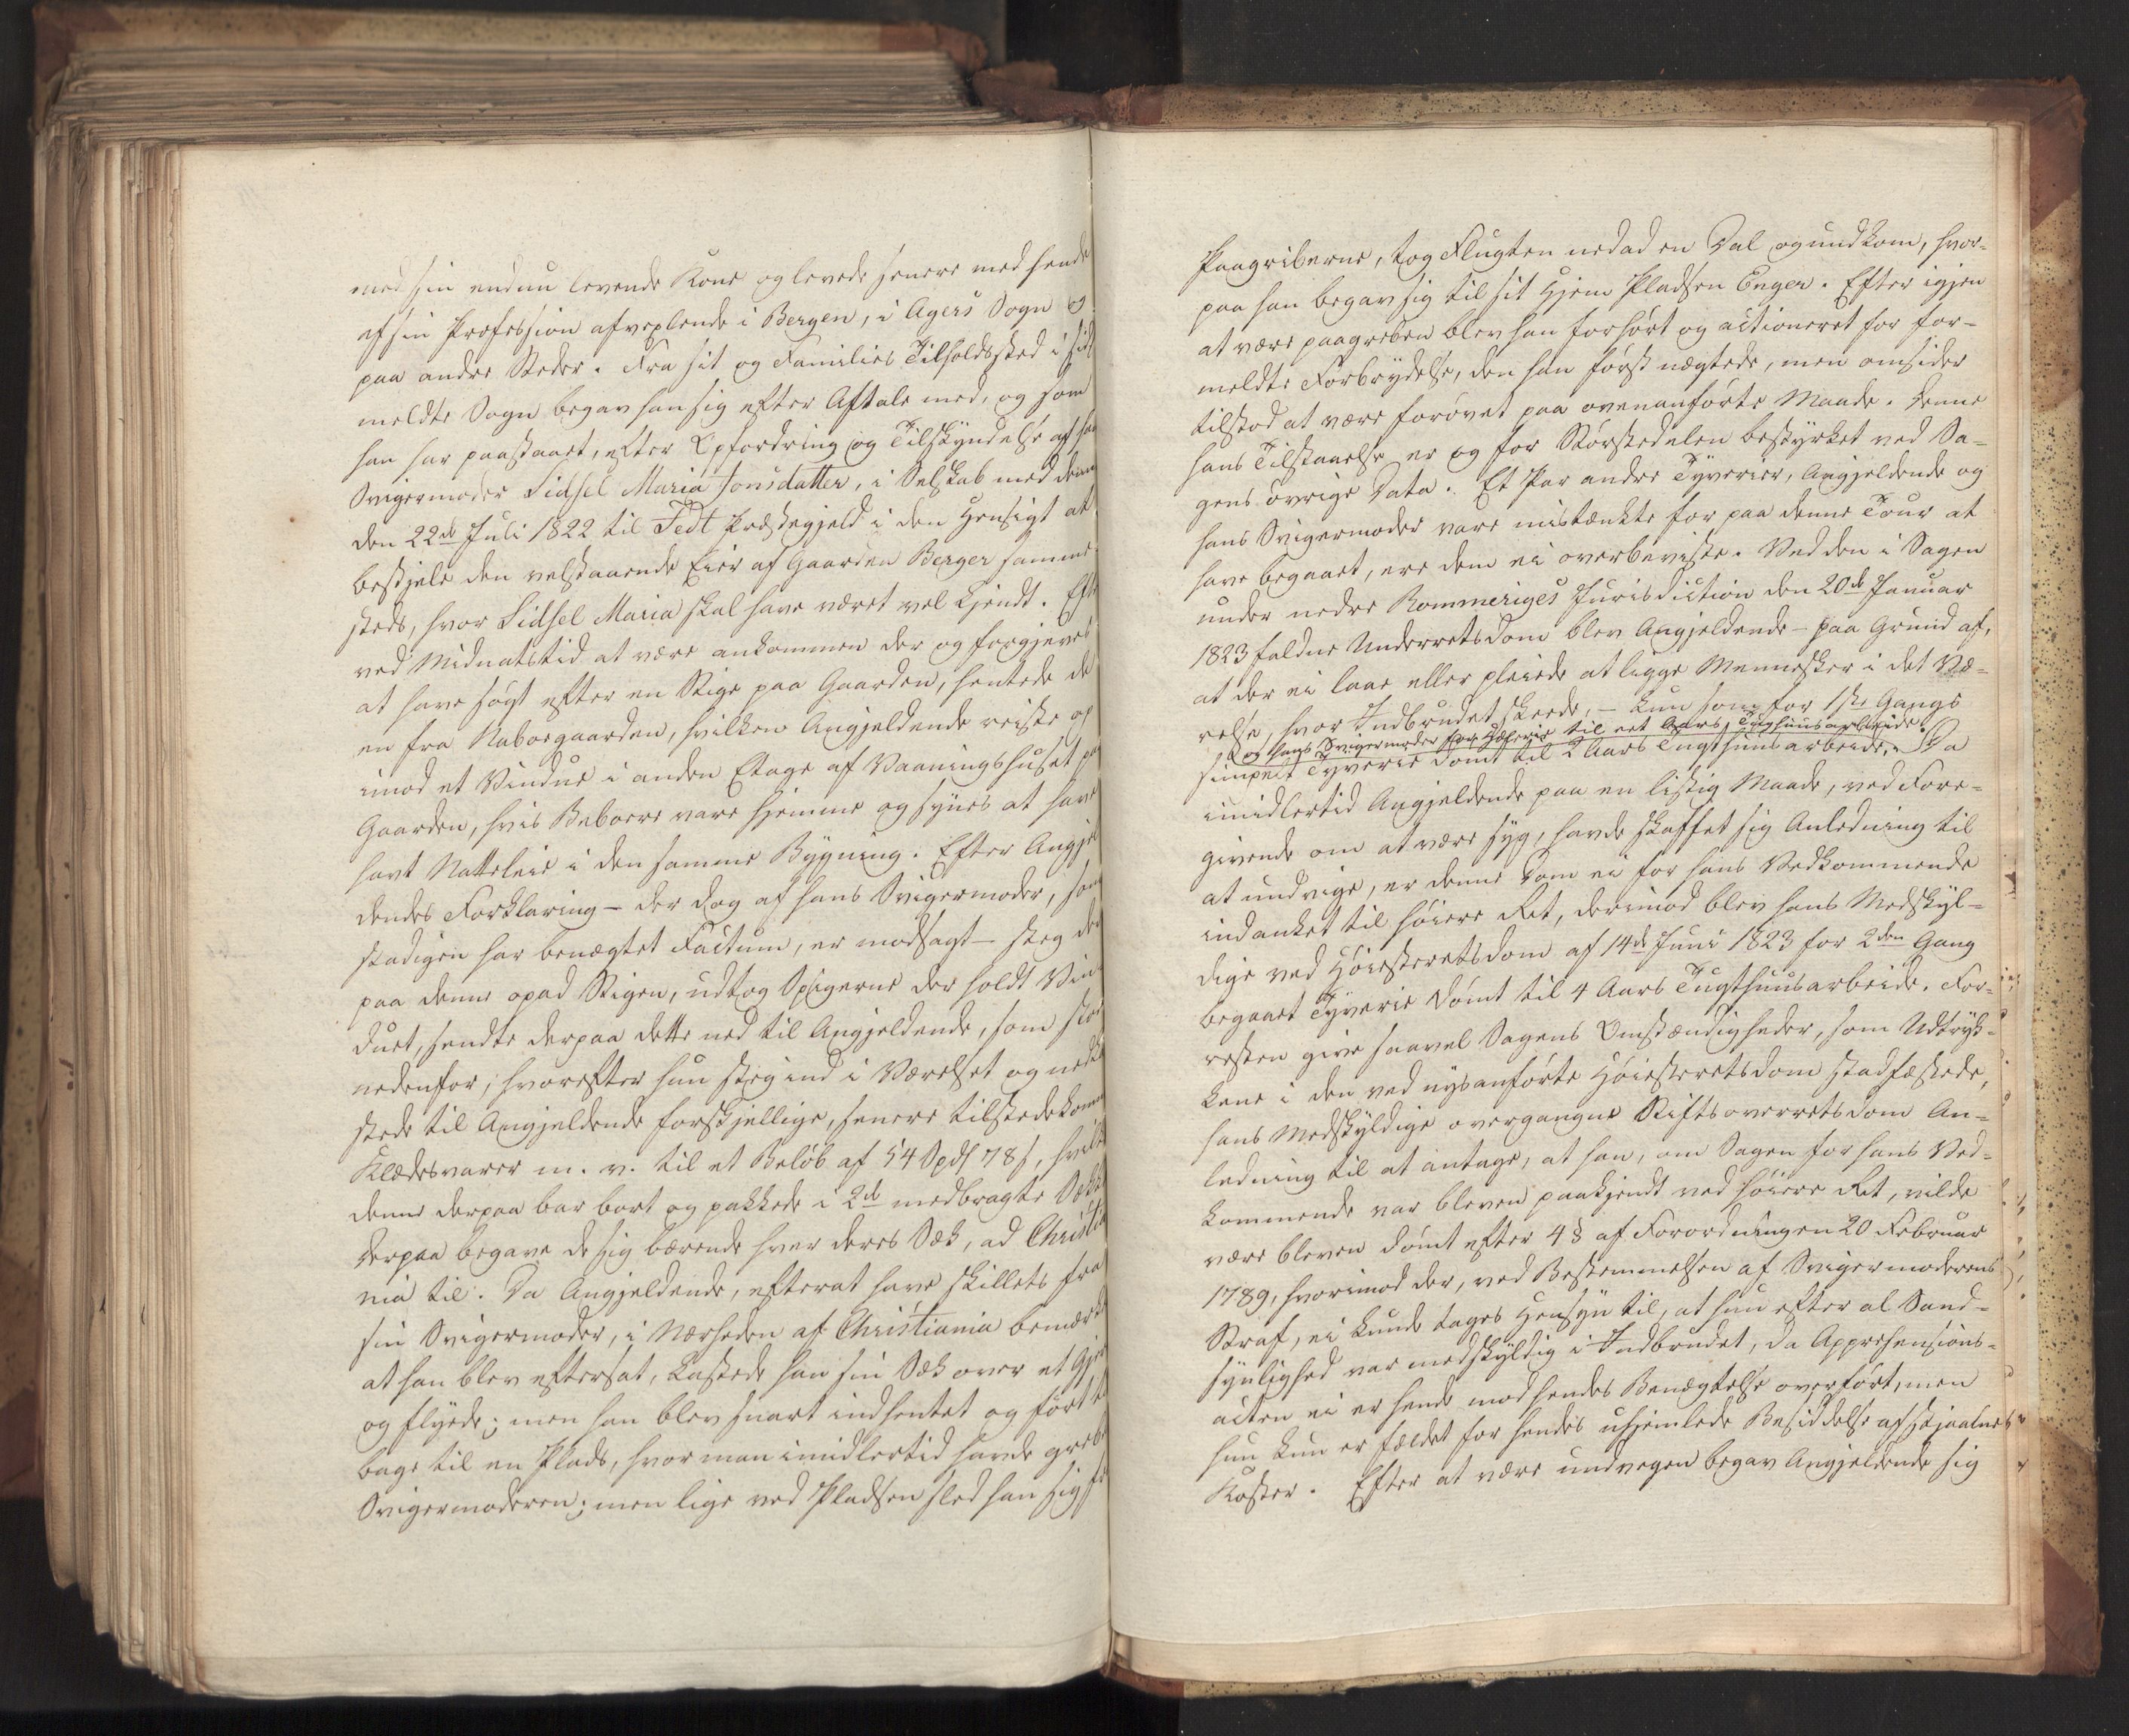 med sin endnu levende Kone og levede senere med hende
af sin Profession afvexlende i Bergen, i Agers Sogn og
paa andre Steder. Fra sit og Families Tilholdssted i sidst
meldte Sogn begav han sig efter Aftale med, og som
han har paastaaet, efter Opfordring og Tilskyndelse af hans
Svigermoder Lidsel Maria Jonsdatter, i Selskab med denne
den 22de Juli 1822 til Fedt Præstegjeld i den Hensigt at
bestjele den velstaaende Eier af Gaarden Berger samme-
steds, hvor Lidsel Maria skal have været vel kjendt. Efter
ved Midnatstid at være ankommen der og forgjeves
at have søgt efter en Stige paa Gaarden, hentede de
en fra Naboegaarden, hvilken Angjeldende reiste op
imod et Vindue i anden Etage af Vaaningshuset paa
Gaarden, hvis Beboere vare hjemme og synes at have
havt Natteleie i den samme Bygning. Efter Angjel
dendes Forklaring – der dog af hans Svigermoder, som
stadigen har benægtet Factum, er modsagt – steg der
paa denne opad Stigen, udtog Spigerne der holdt Vin-
duet, sendte derpaa dette ned til Angjeldende, som stod
nedenfor, hvorefter hun steg ind i Værelset og ned
stede til Angjeldende forskjellige, senere tilstedekomne
Klædesvarer m. v. til et Beløb af 54 Spd 78 s, hvilke
denne derpaa bar bort og pakkede i 2de medbragte Sække
derpaa begave de sig bærende hver deres Sæk, ad Christia
nia til. Da Angjeldende, efterat have skillets fra
sin Svigermoder, i Nærheden af Christiania bemærkede
at han blev eftersat, kastede han sin Sæk over et Gjer
og flyede; men han blev snart indhentet og ført til
bage til en Plads, hvor man imidlertid havde grebet
Svigermoderen; men lige ved Pladsen sled han sig fra
Paagriberne, tog Flugten nedad en Dal og undkom, hvor-
paa han begav sig til sit Hjem Pladsen Enger. Efter igjen
at være paagreben blev han forhørt og actioneret for for-
meldte Forbrydelse, den han først nægtede, men omsider
tilstod at være forøvet paa ovenanførte Maade. Denne
hans Tilstaaelse er og for Størstedelen bestyrket ved Sa-
gens øvrige Data. Et Par andre Tyverier, Angjeldende og
hans Svigermoder vare mistænkte for paa denne Tour at
have begaaet, ere dem ei overbeviste. Ved den i Sagen
under nedre Rommeriges Jurisdiction den 20de Januar
1823 faldne Underretsdom blev Angjeldende – paa Grund af,
at der ei laae eller pleiede at ligge Mennesker i det Væ-
relse, hvor Indbrudet skeede, – kun som for 1ste Gangs
og hans Svigermoder for Hæleri til eet Aars Tugthuusarbeide.
simpelt Tyverie dømt til 2 Aars Tugthuusarbeide. Da
imidlertid Angjeldende paa en listig Maade, ved Fore-
givende om at være syg, havde skaffet sig Anledning til
at undvige, er denne Dom ei for hans Vedkommende
indanket til høiere Ret, derimod blev hans Medskyl-
dige ved Høiesteretsdom af 14de Juni 1823 for 2den Gang
begaaet Tyverie dømt til 4 Aars Tugthuusarbeide. For-
resten give saavel Sagens Omstændigheder, som Udtryk-
kene i den ved nysanførte Høiesteretsdom stadfæstede,
hans Medskyldige overgangne Stiftsoverretsdom An-
ledning til at antage, at han, om Sagen for hans Ved-
kommende var bleven paakjendt ved høiere Ret, vilde
være bleven dømt efter 4 § af Forordningen 20 Februar
1789, hvorimod der, ved Bestemmelsen af Svigermoderens
Straf, ei kunde tages Hensyn til, at hun efter al Sand-
synlighed var medskyldig i Indbrudet, da Apprehensions-
acten ei er hende mod hendes Benægtelse overført, men
hun kun er fældet for hendes uhjemlede Besiddelse af stjaalne
Koster. Efter at være undvegen begav Angjeldende sig